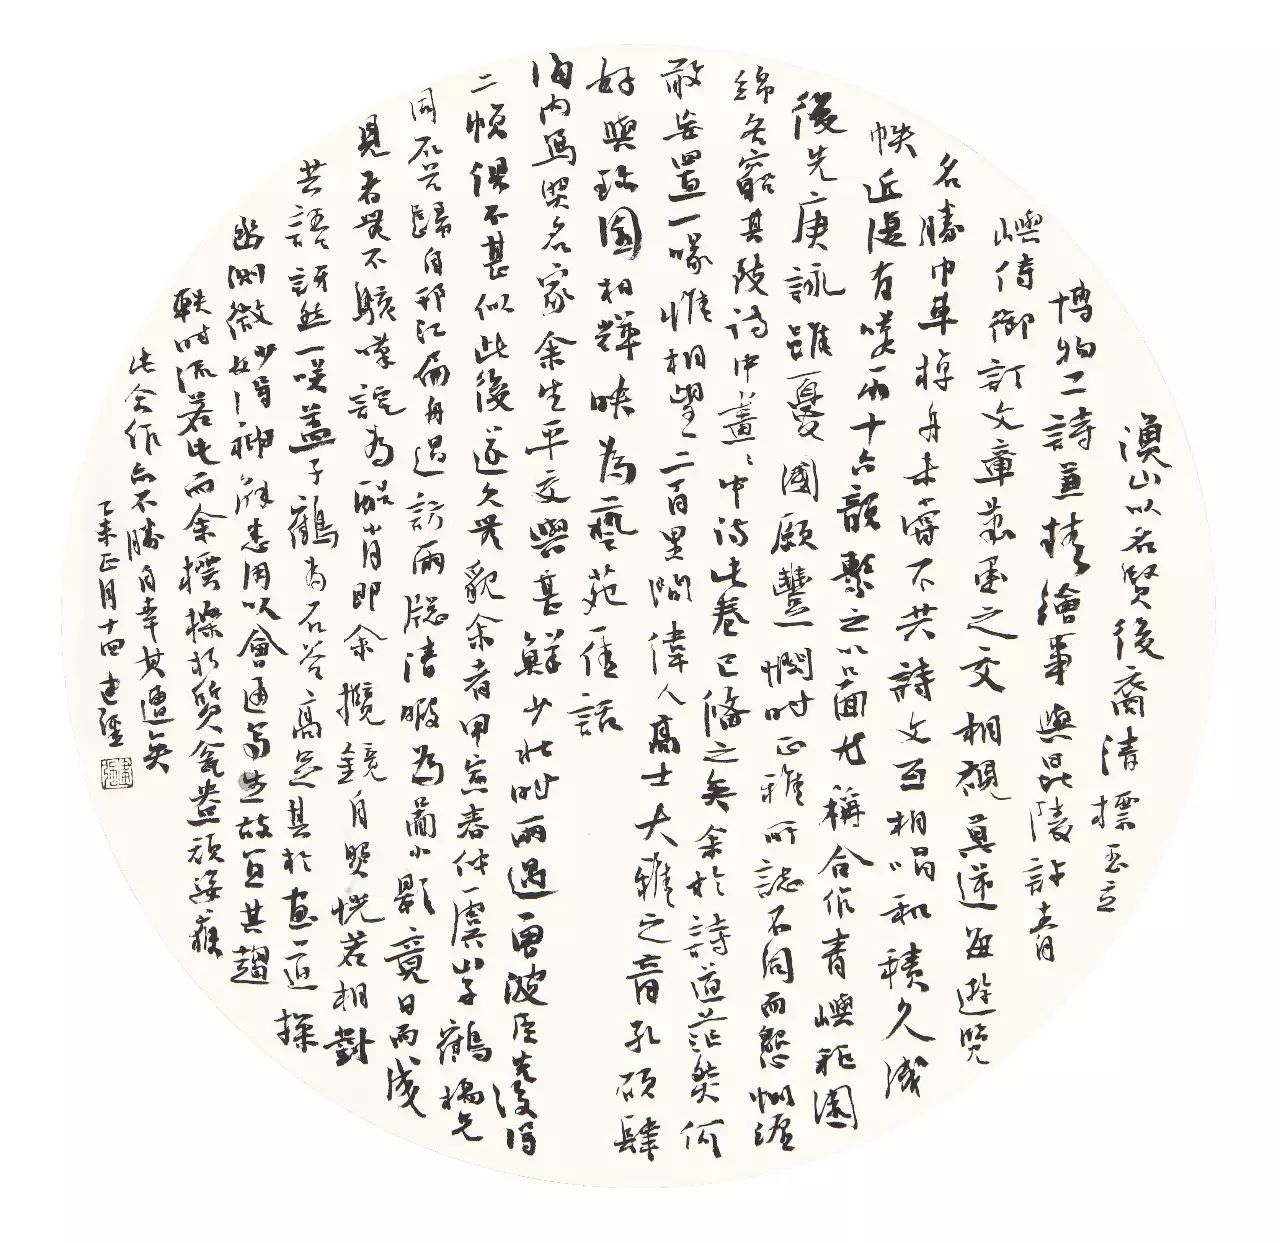 漁山以名賢後裔清標玉立
博物工詩兼精繪事與毘陵許青
嶼侍御訂文章翰墨之交相視莫逆每遊覽
名勝巾車棹舟未嘗不共詩文互相唱和積久成
帙近復有嘆雨十六韻聚之以畫尤稱合作青嶼祗園
後先賡詠雖憂國願豐憫時正雅所誌不同而懇惻纏
綿各竊其陂詩中畫畫中詩此卷已備之矣余於詩道茫然何
敢妄置一喙惟相望二百里間偉人高士大雅之音孔碩肆
好與玅圖相輝映為藝苑佳話
海內寫照名家余生平交與甚鮮少壯時兩遇曾波臣先後得
二幀俱不甚似此後遂久無貌余者甲寅春仲虞山子鶴楊兄
同石谷歸自邗江扁舟過訪雨牕清暇為圖小影竟日而成
見者無不駭嘆詫為酷肖即余攬鏡自照恍若相對
共語訝然一笑蓋子鶴為石谷高足其於畫一道探
幽測微妙得神解悉用以會通寫生故宜其超
軼時流若此而余樸樕於質龕蠢頑姿癯
此合作亦不勝自幸其遭矣
乙未正月十四